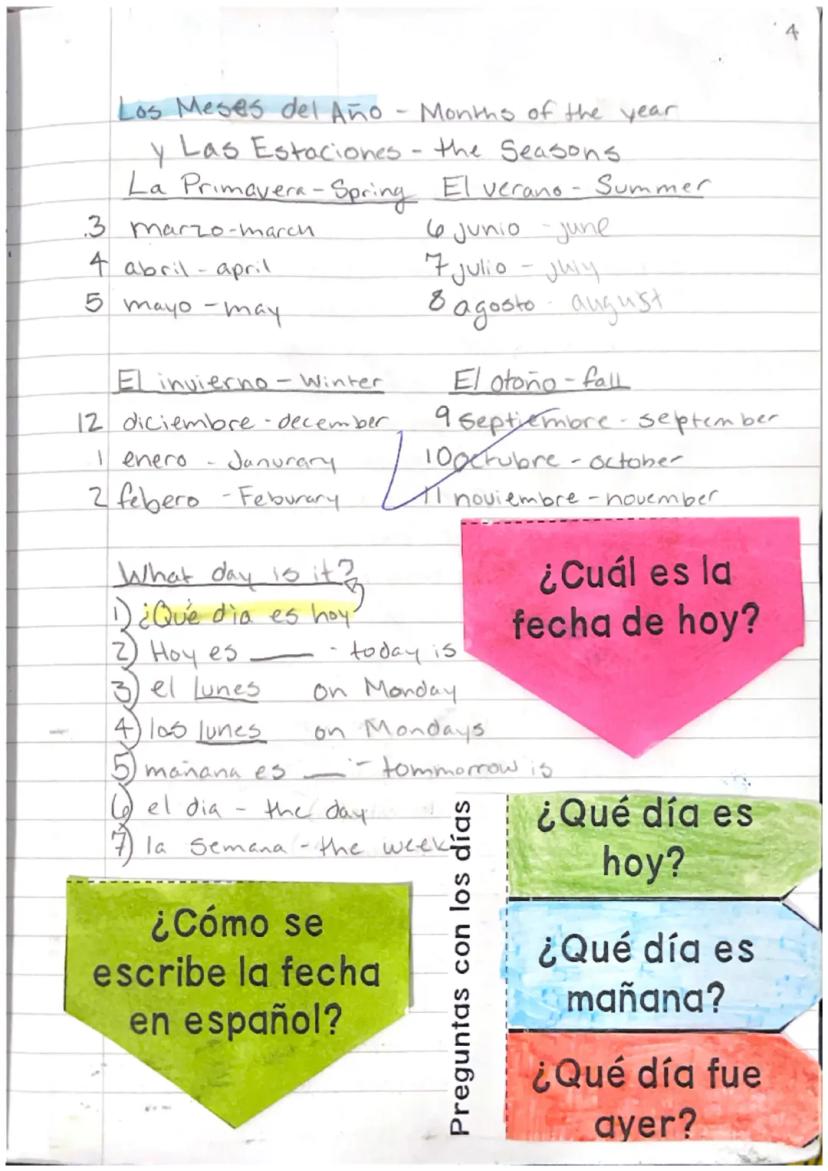 4
Los Meses del Año - Months of the year
y Las Estaciones - the Seasons
La Primavera - Spring El verano - Summer
3 marzo - march 6 junio - june
4 abril - april 7 julio - july
5 mayo - may 8 agosto - august
El invierno - Winter El otoño - fall
12 diciembre - december 9 septiembre - september
1 enero - Janurary 10 octubre - october
2 febero - Feburary 11 noviembre - november
What day is it?
1) ¿Qué dia es hoy
2) Hoy es ___ - today is
3) el lunes on Monday
4) los lunes on Mondays
5) mañana es ___ - tommorrow is
6) el dia - the day
7) la semana - the week
¿Cuál es la
fecha de hoy?
¿Cómo se
escribe la fecha
en español?
Preguntas con los días
¿Qué día es
hoy?
¿Qué día es
mañana?
¿Qué día fue
ayer?